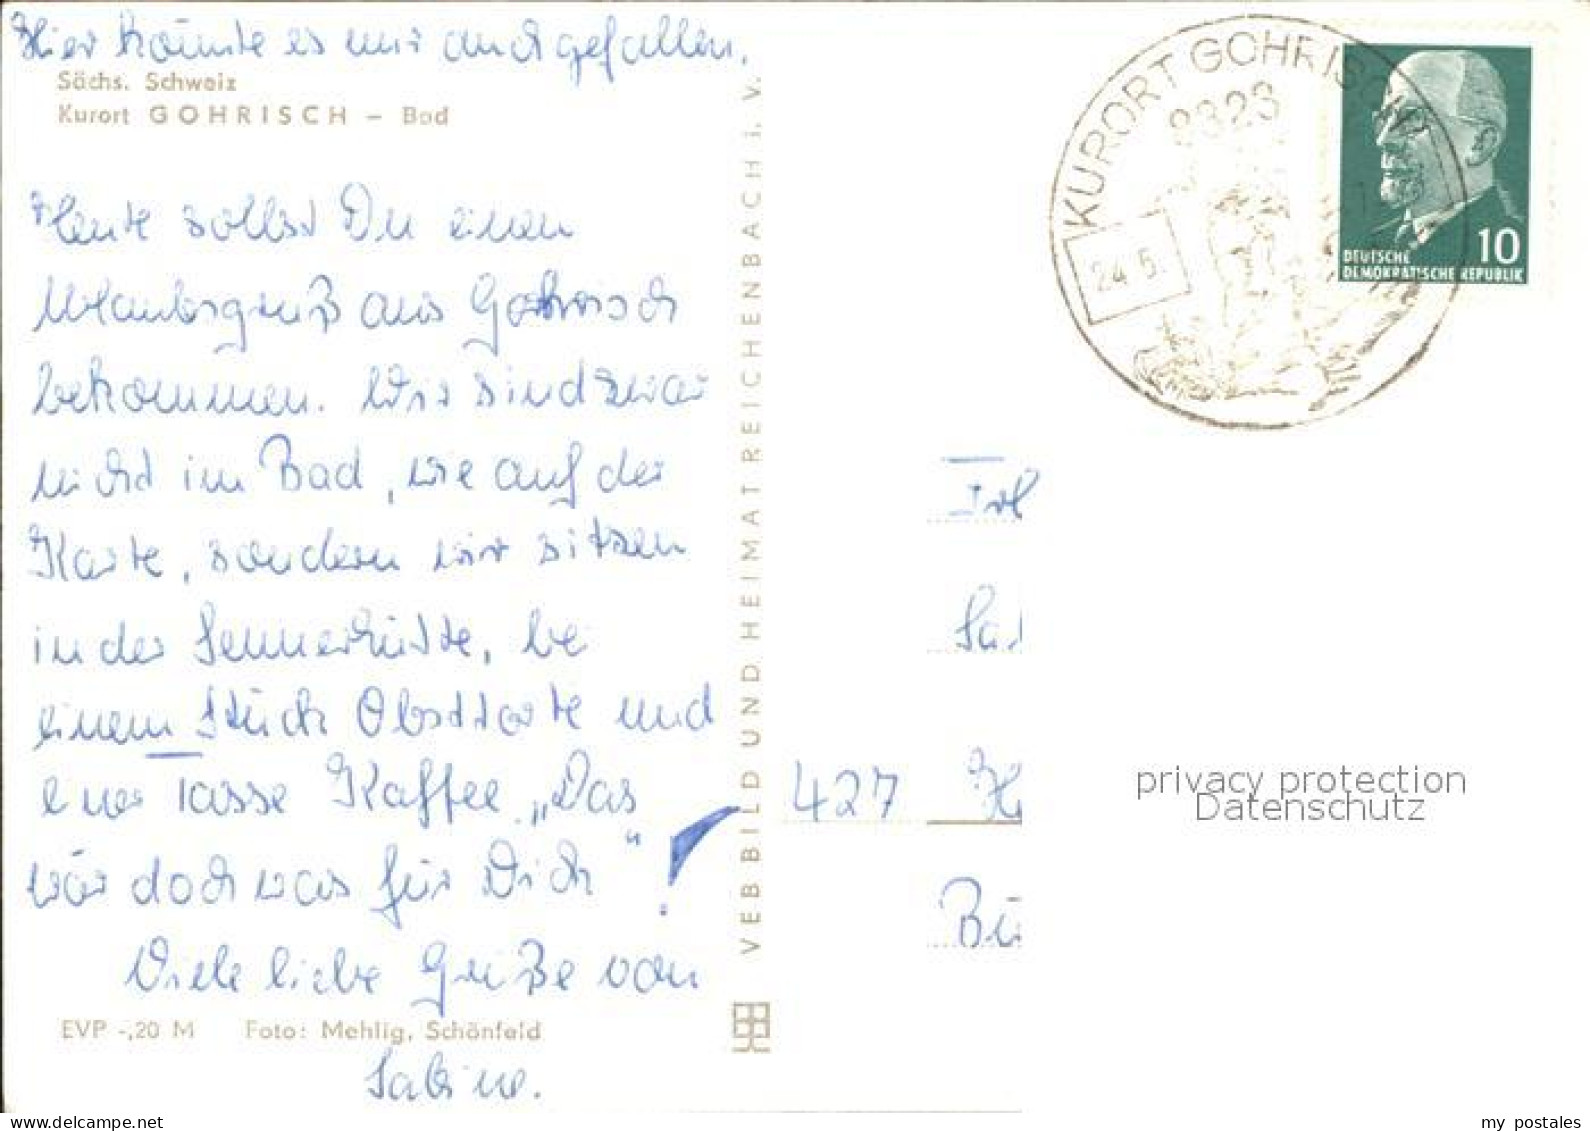 Hier könnte es mir auch gefallen.
Sächs. Schweiz
Kurort GOHRISCH – Bad
Heute sollst Du einen
Urlaubsgruß aus Gohrisch
bekommen. Wir sind zwar
nicht im Bad, wie auf der
Karte, sondern wir sitzen
in der Sennerhütte, bei
einem Stück Obsttorte und
einer Tasse Kaffee. „Das
wär doch was für Dich“!
Viele liebe Grüße von
Sabine.
EVP -,20 M Foto: Mehlig, Schönfeld
VEB BILD UND HEIMAT REICHENBACH i. V.
KURORT GOHRISCH
8323
24.5.
10
DEUTSCHE
DEMOKRATISCHE REPUBLIK
427
Bü
privacy protection
Datenschutz
my postales